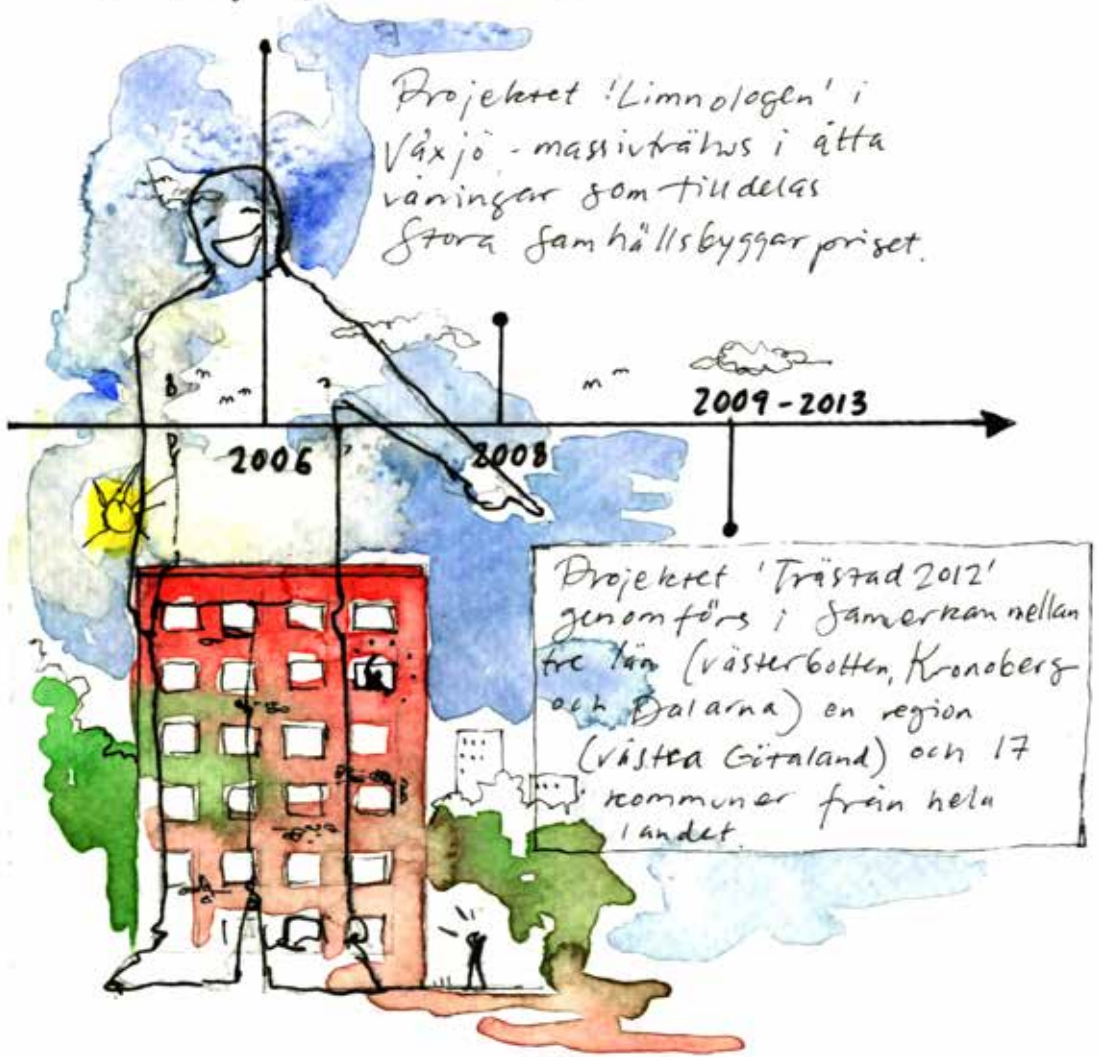 Projektet 'Limnologen' i
Växjö - massivträhus i åtta
våningar som tilldelas
Stora Samhällsbyggarpriset.
2009-2013
2006
2008
Projektet 'Trästad 2012'
genomförs i Samerkan mellan
tre län (västerbotten, Kronoberg
och Dalarna) en region
(västra Götaland) och 17
kommuner från hela
landet.